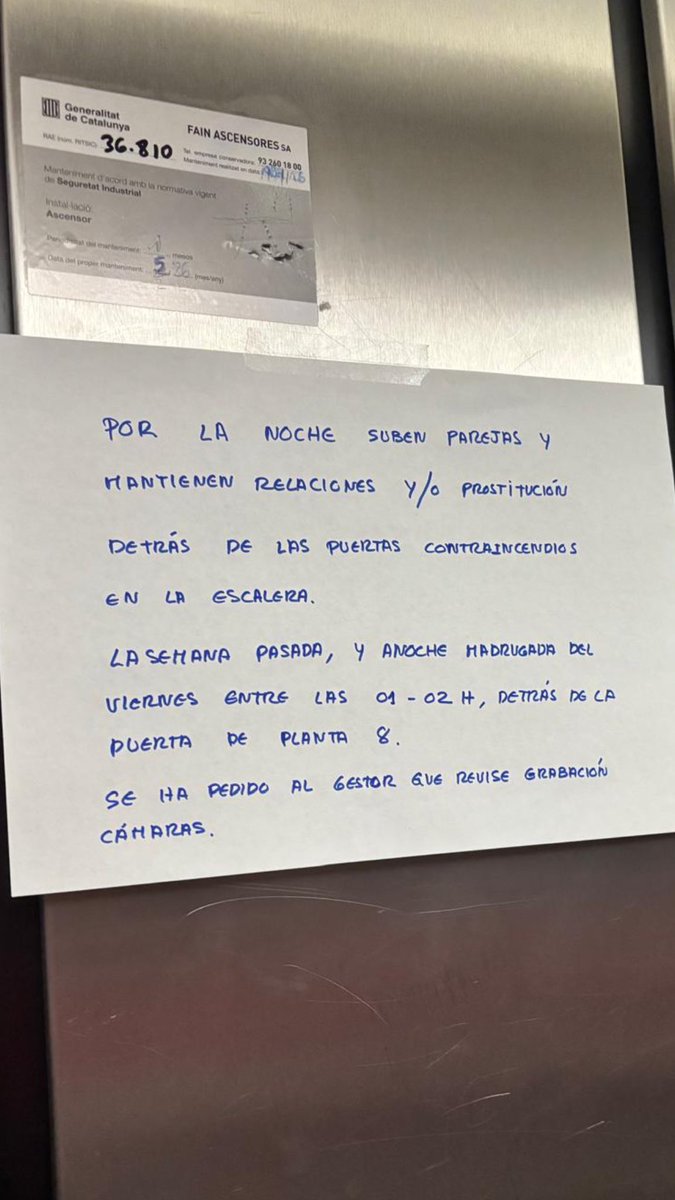 Generalitat
de Catalunya
FAIN ASCENSORES SA
RAE (núm. RITSIC): 36.810
Tel. empresa conservadora: 93 260 18 00
Manteniment realitzat en data:
Manteniment d'acord amb la normativa vigent
de Seguretat Industrial
Instal·lació:
Ascensor
Periodicitat del manteniment: 1 mesos
Data del proper manteniment: 5 26 (mes/any)
POR LA NOCHE SUBEN PAREJAS Y
MANTIENEN RELACIONES Y/O PROSTITUCIÓN
DETRÁS DE LAS PUERTAS CONTRAINCENDIOS
EN LA ESCALERA.
LA SEMANA PASADA, Y ANOCHE MADRUGADA DEL
VIERNES ENTRE LAS 01-02 H, DETRÁS DE LA
PUERTA DE PLANTA 8.
SE HA PEDIDO AL GESTOR QUE REVISE GRABACIÓN
CÁMARAS.